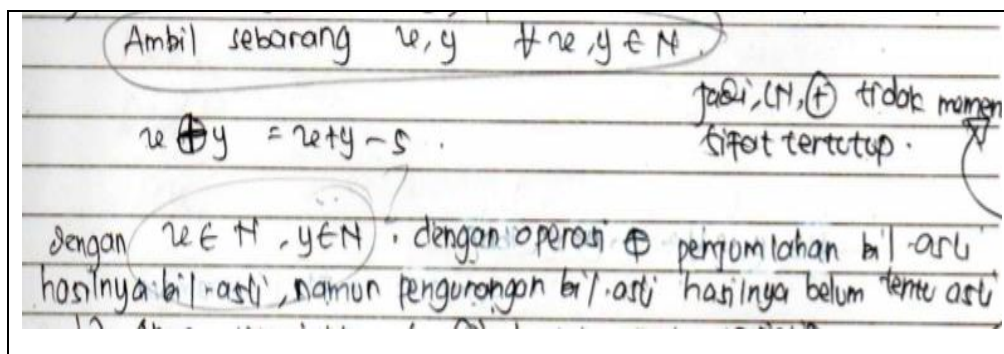 Ambil sebarang x, y ∀ x, y ∈ N.
jadi, (N, ⊕) tidak memen
sifat tertutup.
x ⊕ y = x + y - 5.
dengan x ∈ N, y ∈ N. dengan operasi ⊕ penjumlahan bil asli
hasilnya bil asli, namun pengurangan bil. asli hasilnya belum tentu asli